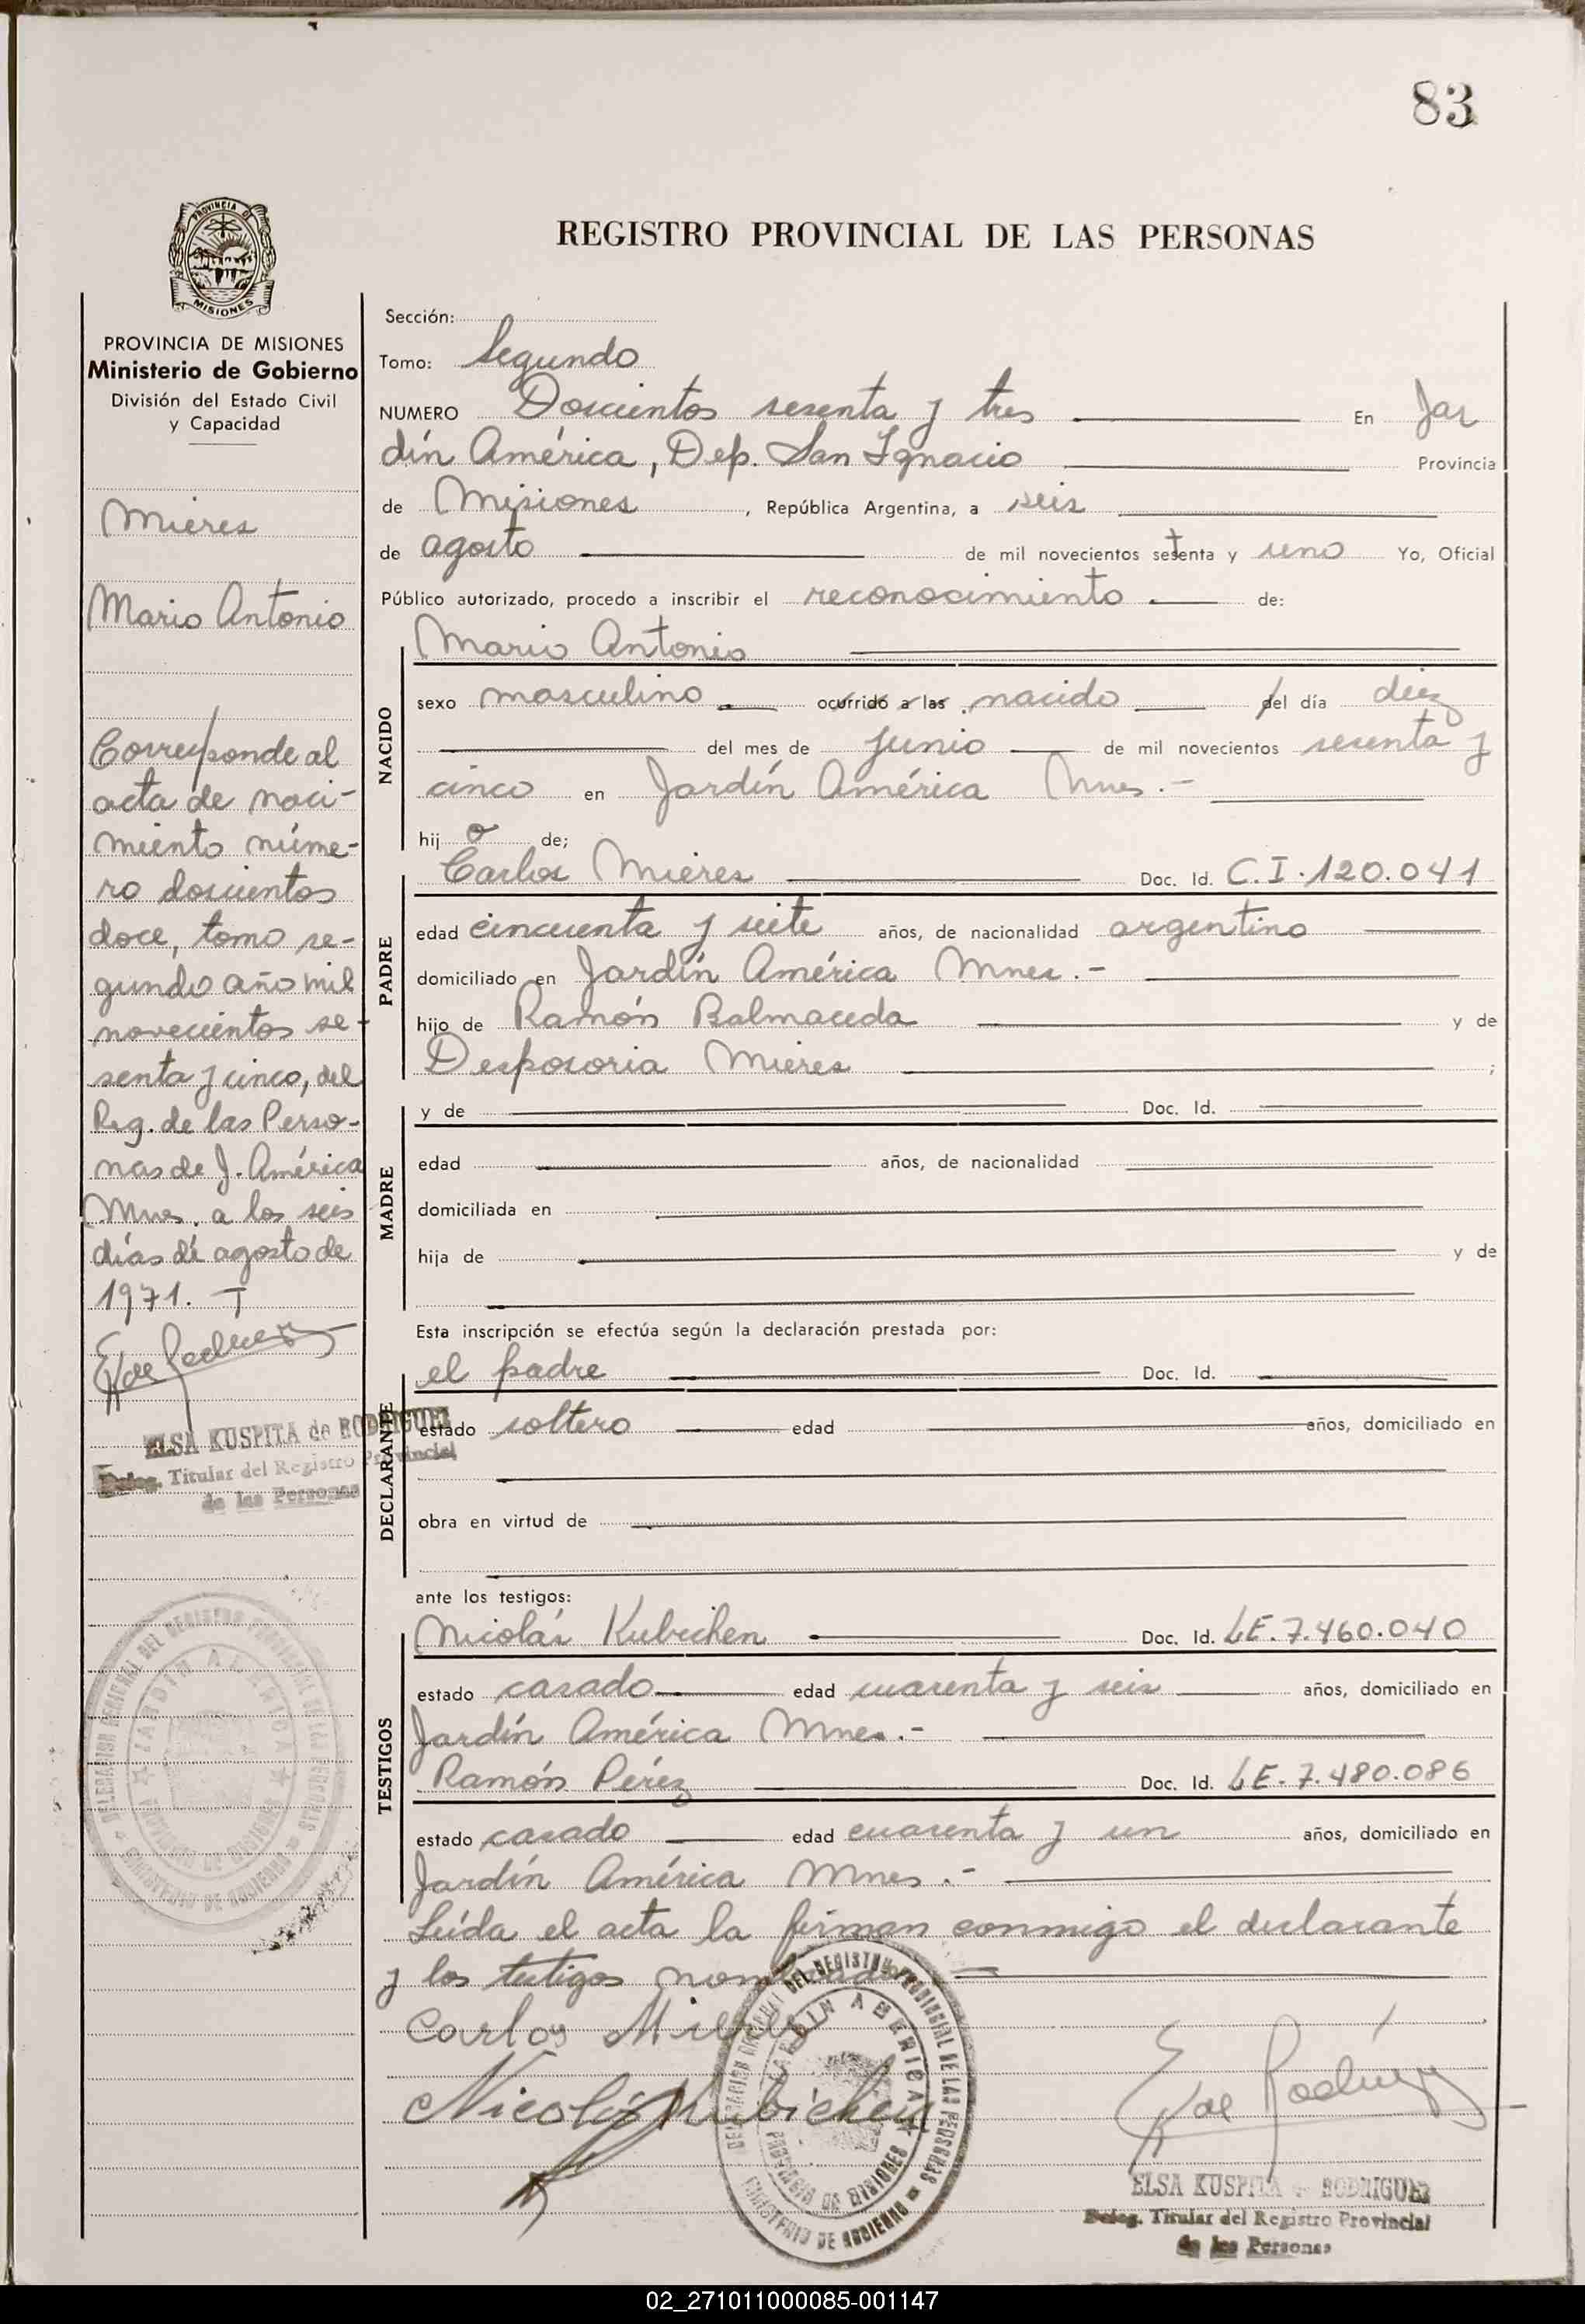 83
REGISTRO PROVINCIAL DE LAS PERSONAS
PROVINCIA DE MISIONES
PROVINCIA DE MISIONES
Ministerio de Gobierno
División del Estado Civil
y Capacidad
Mieres
Mario Antonio
Corresponde al
acta de naci-
miento núme-
ro doscientos
doce, tomo se-
gundo año mil
novecientos se-
senta y cinco, del
Reg. de las Perso-
nas de J. América
Mnes. a los seis
días de agosto de
1971.
ELSA KUSPITA de RODRIGUEZ
Deleg. Titular del Registro Provincial
de las Personas
DELEGACION REGIONAL DEL REGISTRO PROVINCIAL DE LAS PERSONAS
JARDIN AMERICA
PROVINCIA DE MISIONES
MINISTERIO DE GOBIERNO
Sección:
Tomo: Segundo
NUMERO Doscientos sesenta y tres En Jar
dín América, Dep. San Ignacio Provincia
de Misiones, República Argentina, a seis
de agosto de mil novecientos setenta y uno Yo, Oficial
Público autorizado, procedo a inscribir el reconocimiento de:
NACIDO
Mario Antonio
sexo masculino ocurrido a las nacido del día diez
del mes de Junio de mil novecientos sesenta y
cinco en Jardín América Mnes.-
hijo de;
PADRE
Carlos Mieres Doc. Id. C.I.120.041
edad cincuenta y siete años, de nacionalidad argentino
domiciliado en Jardín América Mnes.-
hijo de Ramón Balmaceda y de
Desposoria Mieres ;
MADRE
y de Doc. Id.
edad años, de nacionalidad
domiciliada en
hija de y de
Esta inscripción se efectúa según la declaración prestada por:
DECLARANTE
el padre Doc. Id.
estado soltero edad años, domiciliado en
obra en virtud de
ante los testigos:
TESTIGOS
Nicolás Kubichen Doc. Id. LE.7.460.040
estado casado edad cuarenta y seis años, domiciliado en
Jardín América Mnes.-
Ramón Pérez Doc. Id. LE.7.480.086
estado casado edad cuarenta y un años, domiciliado en
Jardín América Mnes.-
Leída el acta la firman conmigo el declarante
y los testigos
Carlos Mieres
Nicolás Kubichen
DELEGACION REGIONAL DEL REGISTRO PROVINCIAL DE LAS PERSONAS
JARDIN AMERICA
PROVINCIA DE MISIONES
MINISTERIO DE GOBIERNO
ELSA KUSPITA de RODRIGUEZ
Deleg. Titular del Registro Provincial
de las Personas
02_271011000085-001147